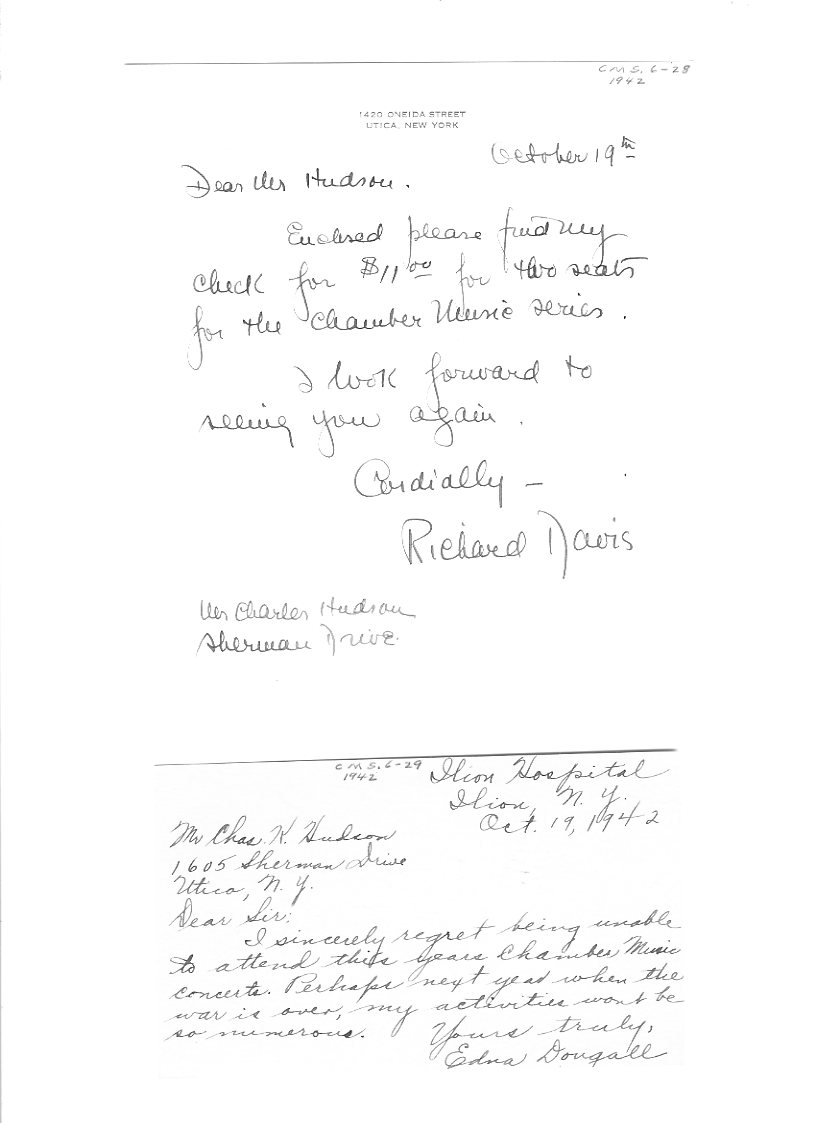 CMS. 6-28
1942
1420 ONEIDA STREET
UTICA, NEW YORK
October 19th
Dear Mr Hudson.
Enclosed please find my
check for $11.00 for two seats
for the Chamber Music series.
I look forward to
seeing you again.
Cordially -
Richard Davis
Mr Charles Hudson
Sherman Drive.
CMS. 6-29
1942
Ilion Hospital
Ilion, N. Y.
Oct. 19, 1942
Mr Chas. K. Hudson
1605 Sherman Drive
Utica, N. Y.
Dear Sir:
I sincerely regret being unable
to attend this years Chamber Music
concerts. Perhaps next year when the
war is over, my activities wont be
so numerous.
Yours truly,
Edna Dougall